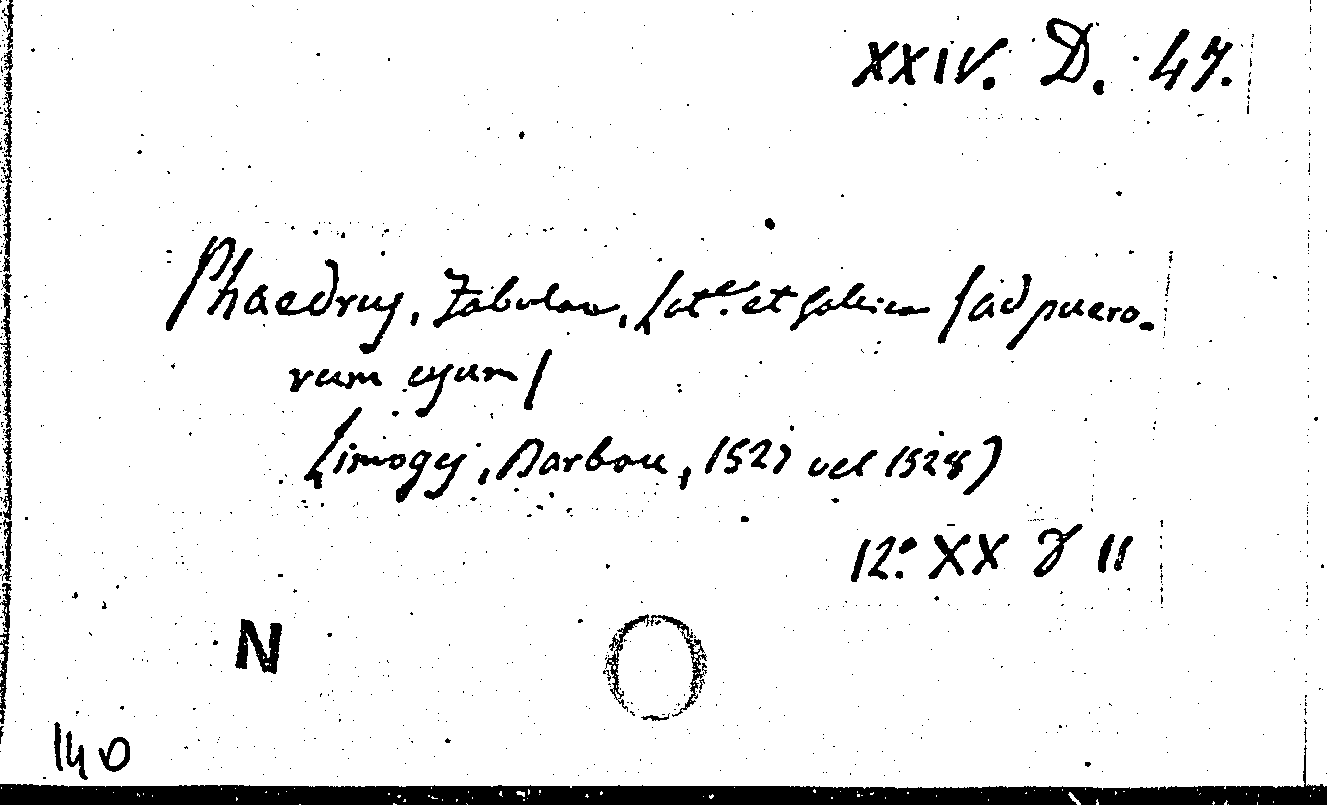 XXIV. D. 47.
Phaedrus, Fabulae, Latᵉ. et gallice (ad puero-
rum usum)
Limoges, Barbou, 1527 vel 1528)
12.° XX 11
N
O
140